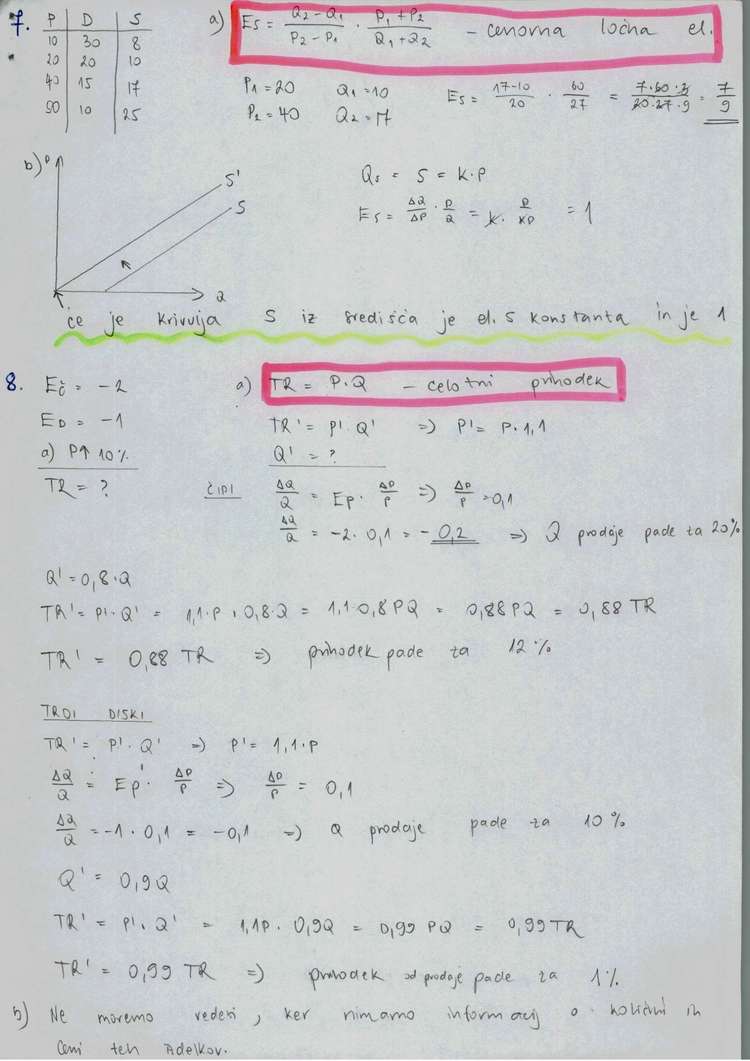 7. P D S
10 30 8
20 20 10
40 15 17
50 10 25
a) Es = Q2 - Q1 / P2 - P1 · P1 + P2 / Q1 + Q2 - cenovna ločna el.
P1 = 20 Q1 = 10
P2 = 40 Q2 = 17
Es = 17-10 / 20 · 60 / 27 = 7·60·3 / 20·27·9 = 7 / 9
b) P
S'
S
Q
Qs = S = k·P
Es = ΔQ / ΔP · P / Q = k · P / KP = 1
če je krivulja S iz središča je el. S konstanta in je 1
8. Eč = -2
ED = -1
a) P↑ 10%
TR = ?
a) TR = P·Q - celotni prihodek
TR' = P'·Q' => P' = P·1,1
Q' = ?
ČIPI ΔQ / Q = Ep · ΔP / P => ΔP / P = 0,1
ΔQ / Q = -2 · 0,1 = -0,2 => Q prodaje pade za 20%
Q' = 0,8·Q
TR' = P'·Q' = 1,1·P·0,8·Q = 1,1·0,8PQ = 0,88PQ = 0,88 TR
TR' = 0,88 TR => prihodek pade za 12%
TRDI DISKI
TR' = P'·Q' => P' = 1,1·P
ΔQ / Q = Ep · ΔP / P => ΔP / P = 0,1
ΔQ / Q = -1 · 0,1 = -0,1 => Q prodaje pade za 10%
Q' = 0,9Q
TR' = P'·Q' = 1,1P · 0,9Q = 0,99 PQ = 0,99TR
TR' = 0,99 TR => prihodek od prodaje pade za 1%
b) Ne moremo vedeti, ker nimamo informacij o količini in
ceni teh izdelkov.